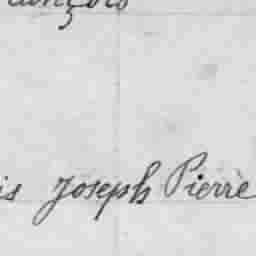 ançois
is Joseph Pierre